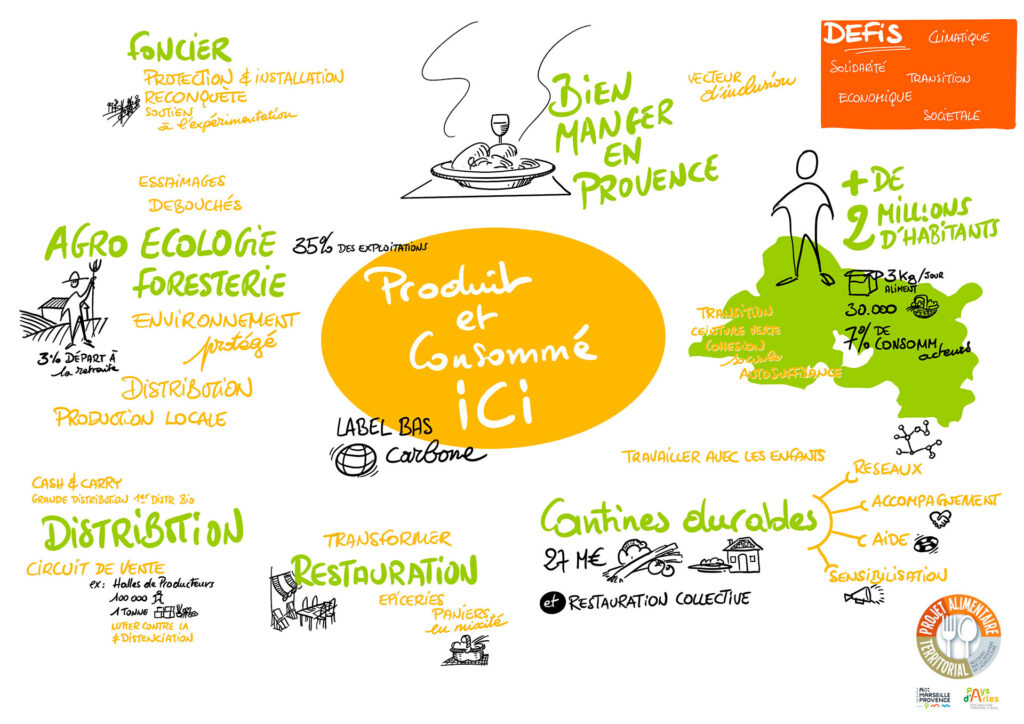 FONCIER
PROTECTION & INSTALLATION
RECONQUÊTE
SOUTIEN
à l'expérimentation
BIEN
MANGER
EN
PROVENCE
VECTEUR
d'inclusion
DEFIS
CLIMATIQUE
SOLIDARITÉ
TRANSITION
ECONOMIQUE
SOCIETALE
ESSAIMAGES
DEBOUCHÉS
AGRO ECOLOGIE
FORESTERIE
35% DES EXPLOITATIONS
ENVIRONNEMENT
protégé
3% DÉPART À
la retraite
DISTRIBUTION
PRODUCTION LOCALE
Produit
et
Consommé
ici
LABEL BAS
carbone
+ DE
2 MILLIONS
D'HABITANTS
3 Kg/JOUR
ALIMENT
30.000
7% DE
CONSOMM
acteurs
TRANSITION
CEINTURE VERTE
COHESION
AUTOSUFFISANCE
CASH & CARRY
GRANDE DISTRIBUTION 1er DISTR BIO
DISTRIBTION
CIRCUIT DE VENTE
ex: Halles de Producteurs
100 000
1 TONNE
LUTTER CONTRE LA
# DISTENCIATION
TRANSFORMER
RESTAURATION
EPICERIES
PANIERS
en mixité
TRAVAILLER AVEC LES ENFANTS
Cantines durables
27 M€
et RESTAURATION COLLECTIVE
RESEAUX
ACCOMPAGNEMENT
AIDE
SENSIBILISATION
PROJET ALIMENTAIRE
TERRITORIAL
MARSEILLE
PROVENCE
Pays
d'Arles